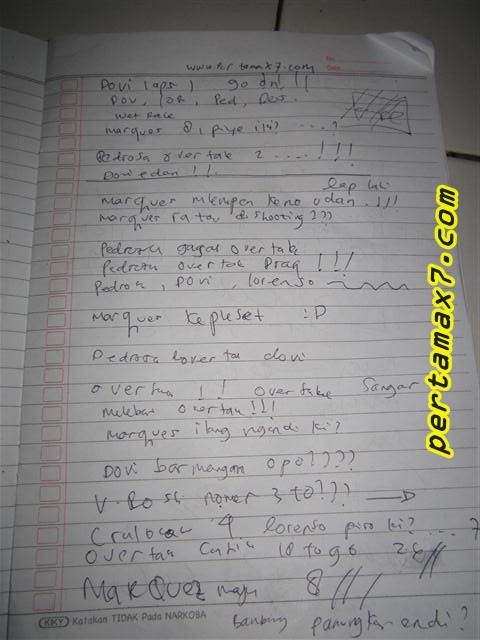 www.Pertamax7.com
No.
Date.
Dovi laps 1 go dn! !!
Dov, lor, Ped, Ros.
wet Race
marques 8, piye iki? ....?
Pedrosa overtak 2 .... !!!
Dovi edan !!
lap iki
marquez mlempem keno udan .!!!
marquez ra tau dishooting???
Pedrosa gagal overtak
Pedrosa overtak !!!
Pedrosa, Dovi, lorenso
Marquez kepleset :D
Pedrosa overtak dovi
overtak !! overtake sangar
melebar overtak !!!
marques ilang ngendi ki?
Dovi bar mangan opo????
V. Rossi nomer 3 to???
4 lorenso piro ki? ... 7
overtak cantik 18 to go
MARQUEZ maju 8 ///
pertamax7.com
KKY Katakan TIDAK Pada NARKOBA
endi?